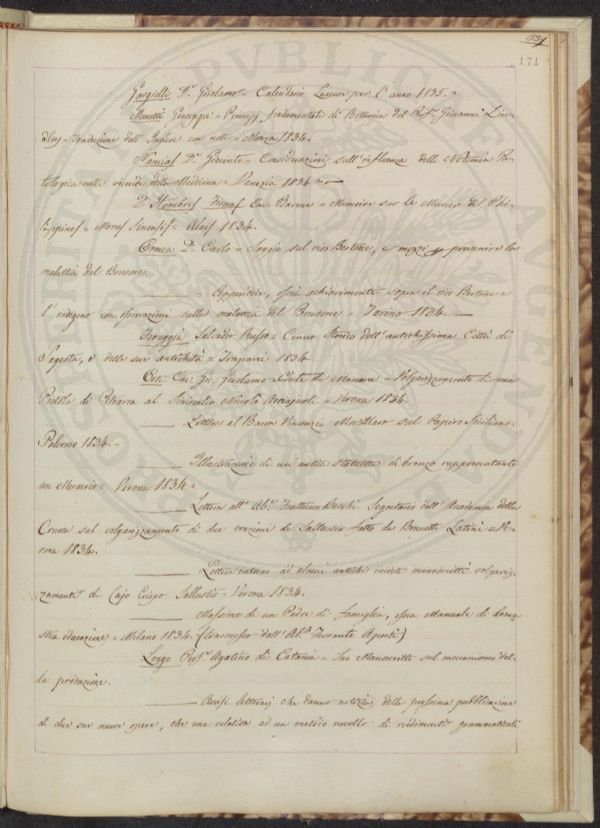 171
Gargiolli D.r Girolamo - Calendario Lunese per l'anno 1835.-
Manetti Giuseppe - Principj fondamentali di Botanica del Prof.r Giovanni Lin-
dley - Traduzione dall'Inglese con note - Monza 1834.-
Namias D.r Giacinto - Considerazioni sull'influenza della Notomia Pa-
tologica nelle vicende della Medicina - Venezia 1834 -
D. Hombres Firmas Cav. Barone - Memoire sur le Murier des Phi-
lippines - Morus Sinensis - Alais 1834.
Ormea D. Carlo - Saggio sul riso Bertone, e mezzi per prevenire la
malattia del Brusone.
Appendice, ossia schiarimento sopra il riso Bertone e
l'indigeno con osservazioni sulla malattia del Brusone - Torino 1834.
Salvador Russo - Cenno Storico dell'antichissima Città di
Segesta, e delle sue antichità - Trapani 1834.
Orti Cav. Gio. Girolamo Conte di Manara - Volgarizzamento di una
Pistola di Petrarca al Siniscalco Nicola Acciajuoli - Verona 1834.
Lettera al Baron Vincenzo Mortillaro sul Papiro Siciliano
Palermo 1834.-
Illustrazione di un antica Statuetta di bronzo rappresentante
un Mercurio - Verona 1834.-
Lettera all'Ab.e Fruttuoso Becchi Segretario dell'Accademia della
Crusca sul volgarizzamento di due orazioni di Sallustio fatto da Brunetto Latini - Ve-
rona 1834.
Lettera intorno ad alcuni antichi inediti manoscritti volgariz-
zamenti di Cajo Crispo Sallustio - Verona 1834.
Massime di un Padre di famiglia, ossia Manuale di dome-
stica educazione - Milano 1834. (trasmesso dall'Ab.e Ferrante Aporti)
Longo Prof.r Agatino di Catania - Suo Manoscritto sul meccanismo del-
la
Avvisi letterarj che danno notizia della prossima pubblicazione
di due sue nuove opere, che una relativa ad un metodo novello di rudimenti grammaticali